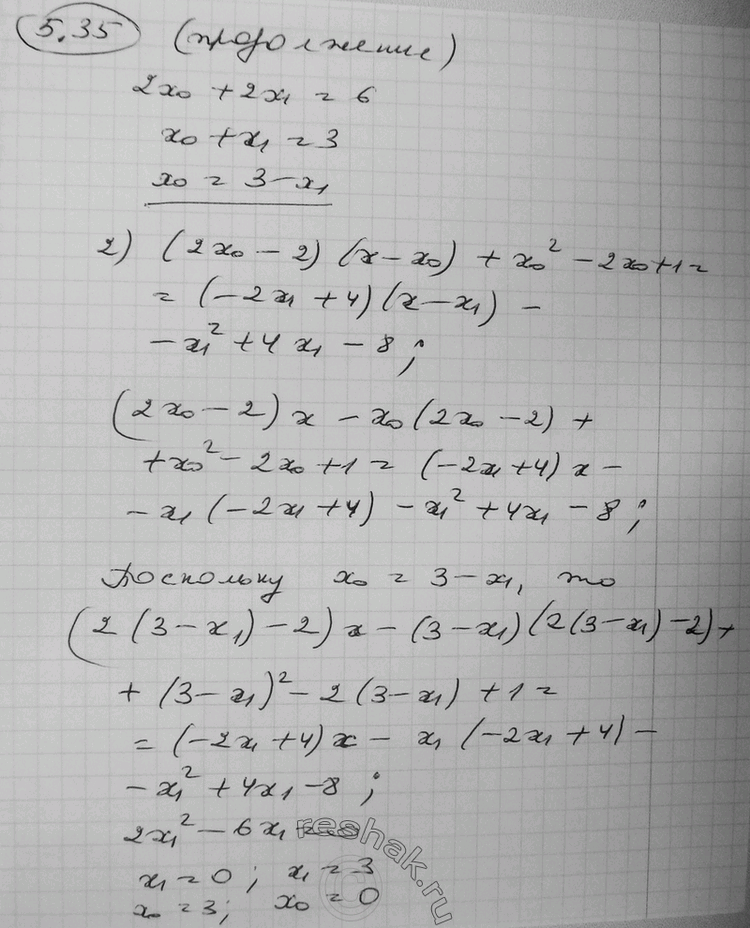 5.35 (продолжение)
2x₀ + 2x₁ = 6
x₀ + x₁ = 3
x₀ = 3 - x₁
2) (2x₀ - 2) (x - x₀) + x₀² - 2x₀ + 1 =
= (-2x₁ + 4) (x - x₁) -
- x₁² + 4x₁ - 8;
(2x₀ - 2) x - x₀ (2x₀ - 2) +
+ x₀² - 2x₀ + 1 = (-2x₁ + 4) x -
- x₁ (-2x₁ + 4) - x₁² + 4x₁ - 8;
Поскольку x₀ = 3 - x₁, то
(2 (3 - x₁) - 2) x - (3 - x₁) (2(3 - x₁) - 2) +
+ (3 - x₁)² - 2 (3 - x₁) + 1 =
= (-2x₁ + 4) x - x₁ (-2x₁ + 4) -
- x₁² + 4x₁ - 8;
2x₁² - 6x₁ =
x₁ = 0; x₁ = 3
x₀ = 3; x₀ = 0
reshak.ru